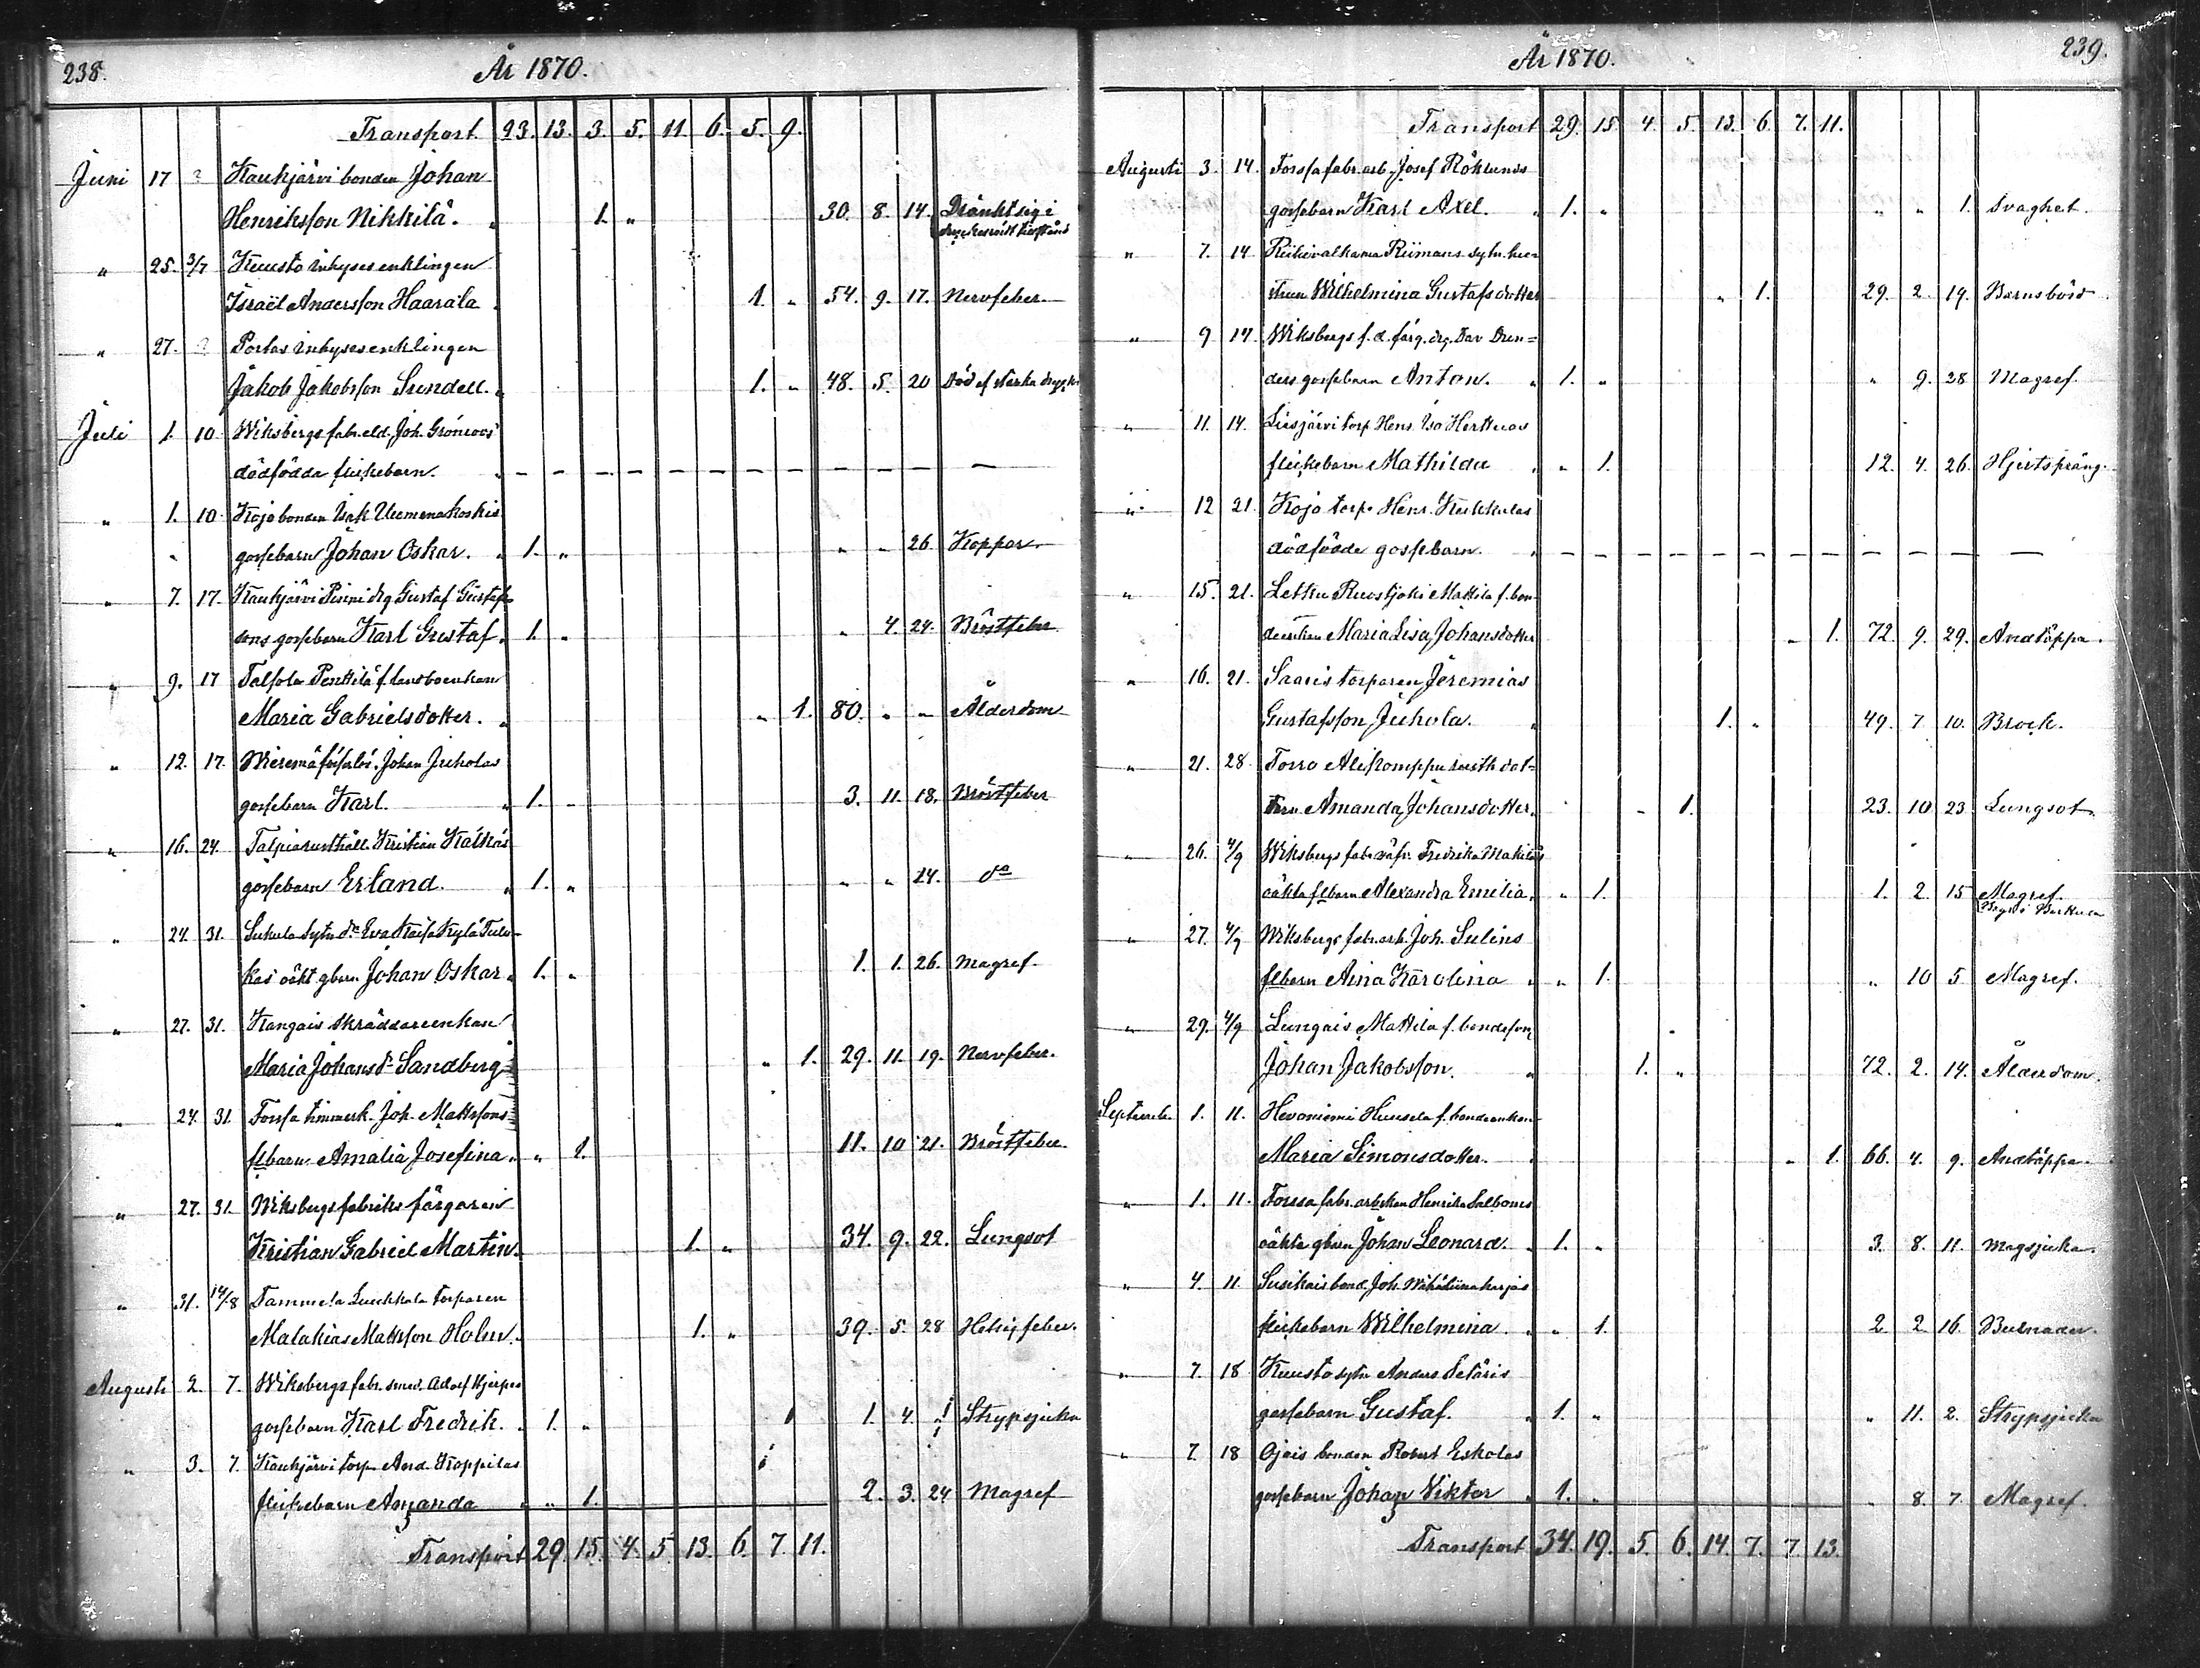 238. År 1870.
Transport 23. 13. 3. 5. 11. 6. 5. 9.
Juni 17 ? Kaukjärvi bonden Johan
Henriksson Nikkilä. 1. " 30. 8. 14. Dränkt sig i
tillstånd
" 25. 3/7 Kuusto inhyses enklingen
Israël Andersson Haarala 1. " 54. 9. 17. Nervfeber.
" 27. ? Portas inhyses enklingen
Jakob Jakobsson Sundell. 1. " 48. 5. 20 Död af starka
Juli 1. 10. Wiksbergs fabr. eld. Joh. Grönroos
dödfödda flickebarn. — — — — — — — — — — —
" 1. 10. Kojo bonden Isak Uumenakoskis
" gossebarn Johan Oskar. " 1. " " " 26. Koppor.
" 7. 17. Kaukjärvi drg Gustaf Gustafs
sons gossebarn Karl Gustaf. 1. " " 4. 24. Bröstfeber.
" 9. 17 Talsola Penttilä f. landboenkan
Maria Gabrielsdotter. " " 1. 80. " " Ålderdom
" 12. 17. Johan Juholas
gossebarn Karl. " 1. " 3. 11. 18. Bröstfeber
" 16. 24. Talpia rusthåll. Kristian
gossebarn Erland. " 1. " " " 24. do
" 24. 31. Sukula Eva Kaisa
kas oäkt gbarn Johan Oskar " 1. " 1. 1. 26. Magref.
" 27. 31. Kangais skräddareenkan
Maria Johansdr Sandberg " 1. 29. 11. 19. Nervfeber.
" 24. 31. Forssa timmerk. Joh. Mattssons
flbarn Amalia Josefina. " " 1. 11. 10. 21. Bröstfeber.
" 27. 31. Wiksbergs fabriks färgaren
Kristian Gabriel Martin. 1. " 34. 9. 22. Lungsot
" 31. 14/8 Tammela torparen
Malakias Mattsson Holm. 1. " 39. 5. 28 feber.
Augusti 2. 7. Wiksbergs fabr. smed. Adolf Hjerpes
gossebarn Karl Fredrik. " 1. " 1. 4. " Strypsjuka
" 3. 7. Kaukjärvi torp. And. Koppilas
flickebarn Amanda " " 1. 2. 3. 24 Magref
Transport 29. 15. 4. 5. 13. 6. 7. 11.
År 1870. 239.
Transport 29. 15. 4. 5. 13. 6. 7. 11.
Augusti 3. 14. Forssa fabr. arb. Josef Röklunds
gossebarn Karl Axel. " 1. " " " 1. Svaghet.
" 7. 14 Riimans
Wilhelmina Gustafsdotter " 1. 29. 2. 19. Barnsbörd.
" 9. 14. Wiksbergs f. d. färg. drg. Dav Dren=
ders gossebarn Anton. " 1. " " 9. 28 Magref.
" 11. 14. Liesjärvi torp. Hens. Isa Herttuas
flickebarn Mathilda " " 1. 12. 4. 26. Hjertspräng.
" 12 21. Kojo torp. Henr. Kukkulas
dödfödde gossebarn. " — — — — — — — — — — — —
" 15. 21. Letku Ruostjoki Mattila f. bon-
deenkan Maria Lisa Johansdotter " 1. 72. 9. 29. Andtäppa.
" 16. 21. Saaris torparen Jeremias
Gustafsson Juhola. " 1. " 49. 7. 10. Bråck.
" 21. 28. Torro rusth. dot-
tern Amanda Johansdotter. " 1. 23. 10 23 Lungsot.
" 26. 4/9 Wiksbergs fabr. Fredrika
oäkta flbarn Alexandra Emilia. " " 1. 1. 2. 15 Magref.
" 27. 4/9 Wiksbergs fabr. arb. Joh. Sulins
flbarn Aina Karolina " " 1. " 10 5. Magref.
" 29. 4/9 Lungais Mattila f. bondeson
Johan Jakobsson. " 1. " 72. 2. 14. Ålderdom.
Septemb. 1. 11. Hevoniemi f. bondeenkan
Maria Simonsdotter. " " 1. 66. 4. 9. Andtäppa.
" 1. 11. Forssa fabr. Henrika Salboms
oäkta gbarn Johan Leonard. " 1. " 3. 8. 11. Magsjuka.
" 4. 11. Susikais bond. Joh.
flickebarn Wilhelmina. " " 1. 2. 2. 16.
" 7. 18 Kuusto sytn. Anders
gossebarn Gustaf. " 1. " " 11. 2. Strypsjuka
" 7. 18 Ojais bonden Robert Eskolas
gossebarn Johan Viktor " 1. " " 8. 7. Magref.
Transport 34. 19. 5. 6. 14. 7. 7. 13.